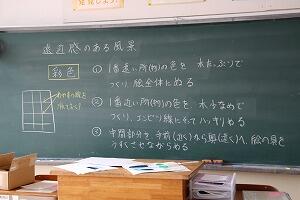 遠近感のある風景
彩色
① 1番遠い所(例)の色を 水たっぷりで
つくり 絵全体にぬる
② 1番近い所(例)の色を 水少なめで
つくり、エンピツ線にそってハッキリぬる
③ 中間部分を手前(近く)から奥(遠く)へ、絵の具を
うすくさせながらぬる